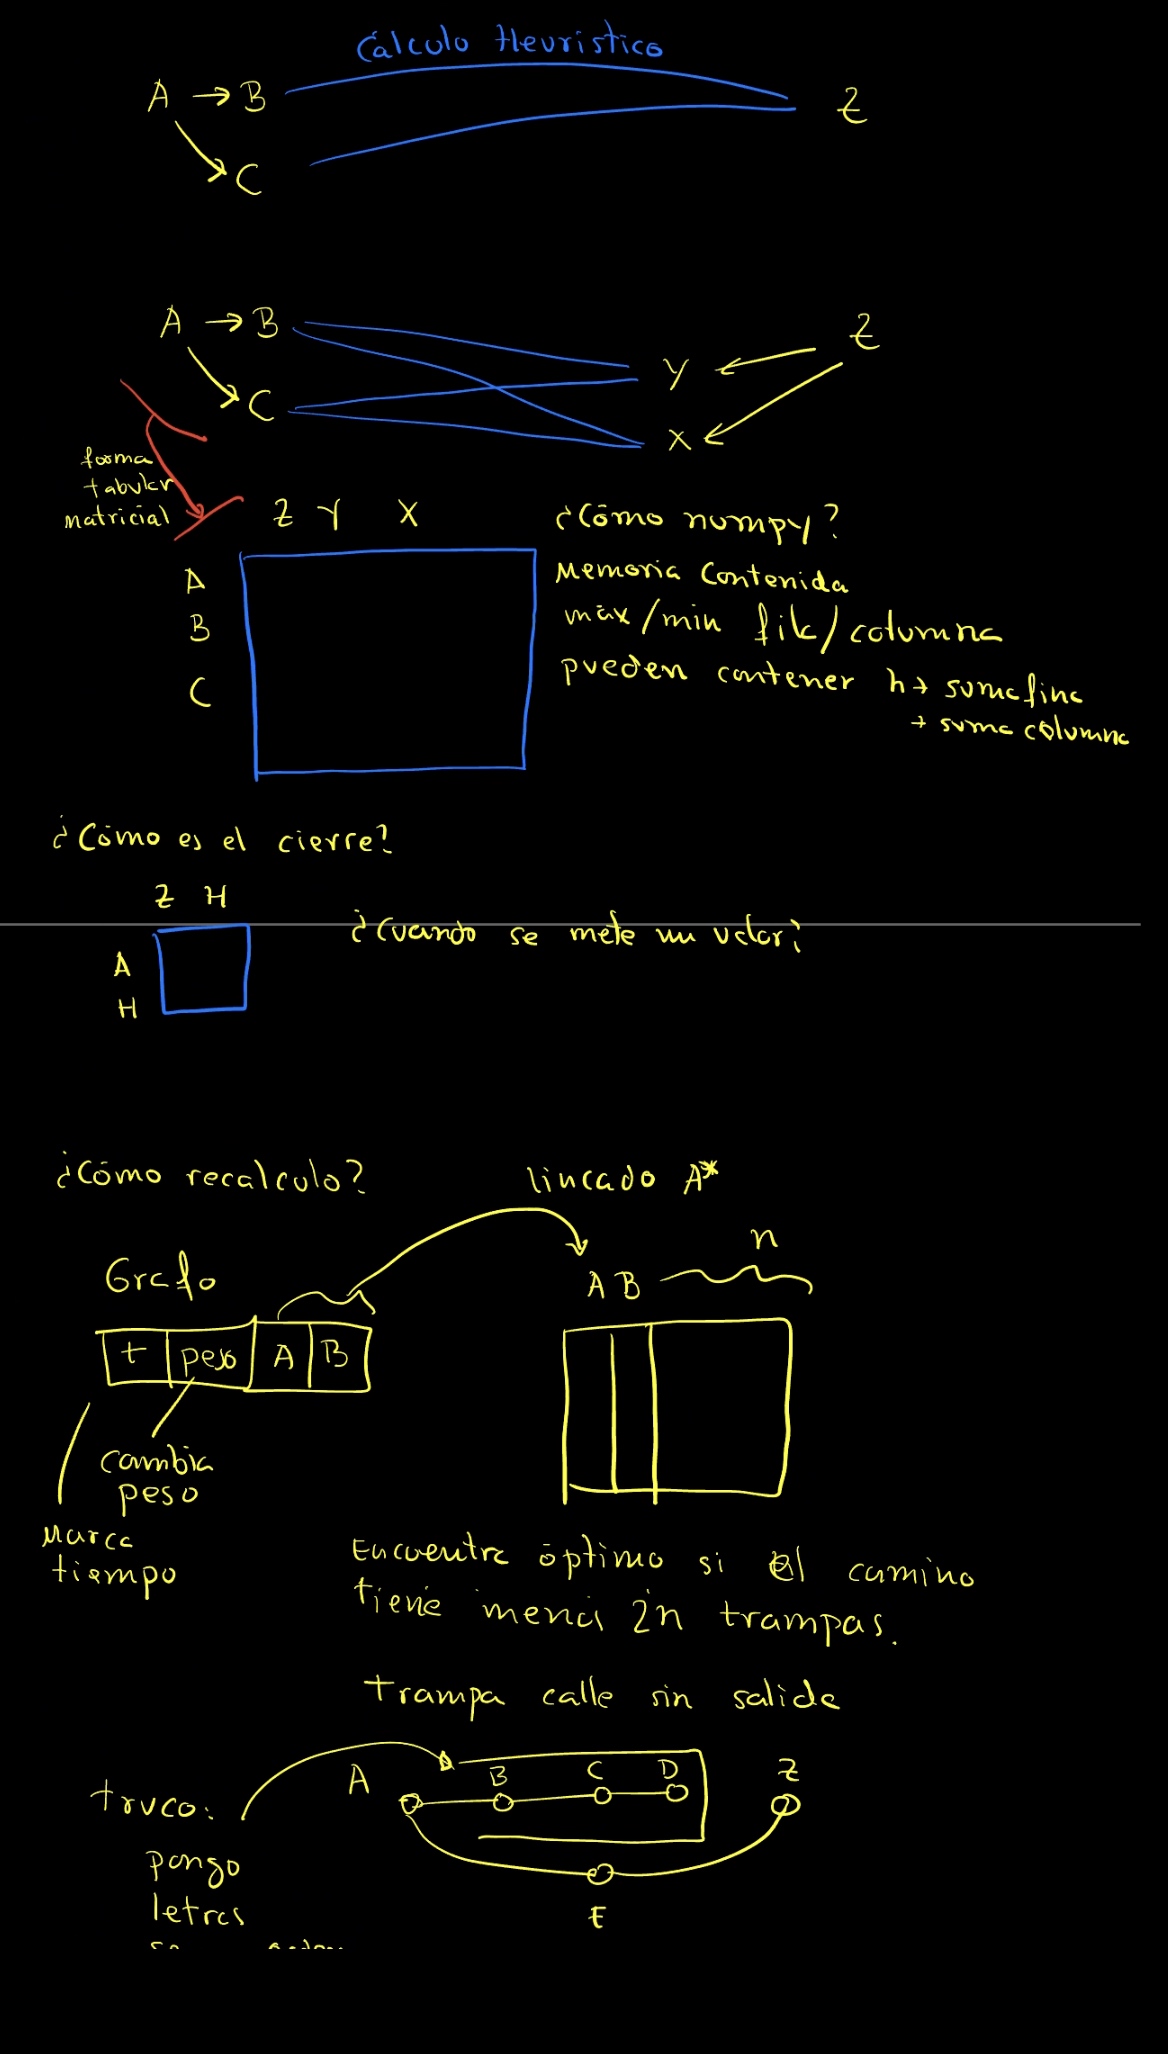 Cálculo Heurístico
A → B
Z
C
A → B
Z
Y
C
X
forma
tabular
matricial
Z Y X
¿Cómo numpy?
A
Memoria Contenida
B
máx/min fila/columna
C
pueden contener h + suma fina
+ suma columna
¿Cómo es el cierre?
Z H
¿Cuando se mete un valor?
A
H
¿Cómo recalculo?
lincado A*
n
Grafo
A B
t peso A B
cambia
peso
Marca
tiempo
Encuentra óptimo si el camino
tiene menos 2n trampas.
trampa calle sin salida
A
B
C
D
Z
truco:
pongo
letras
E